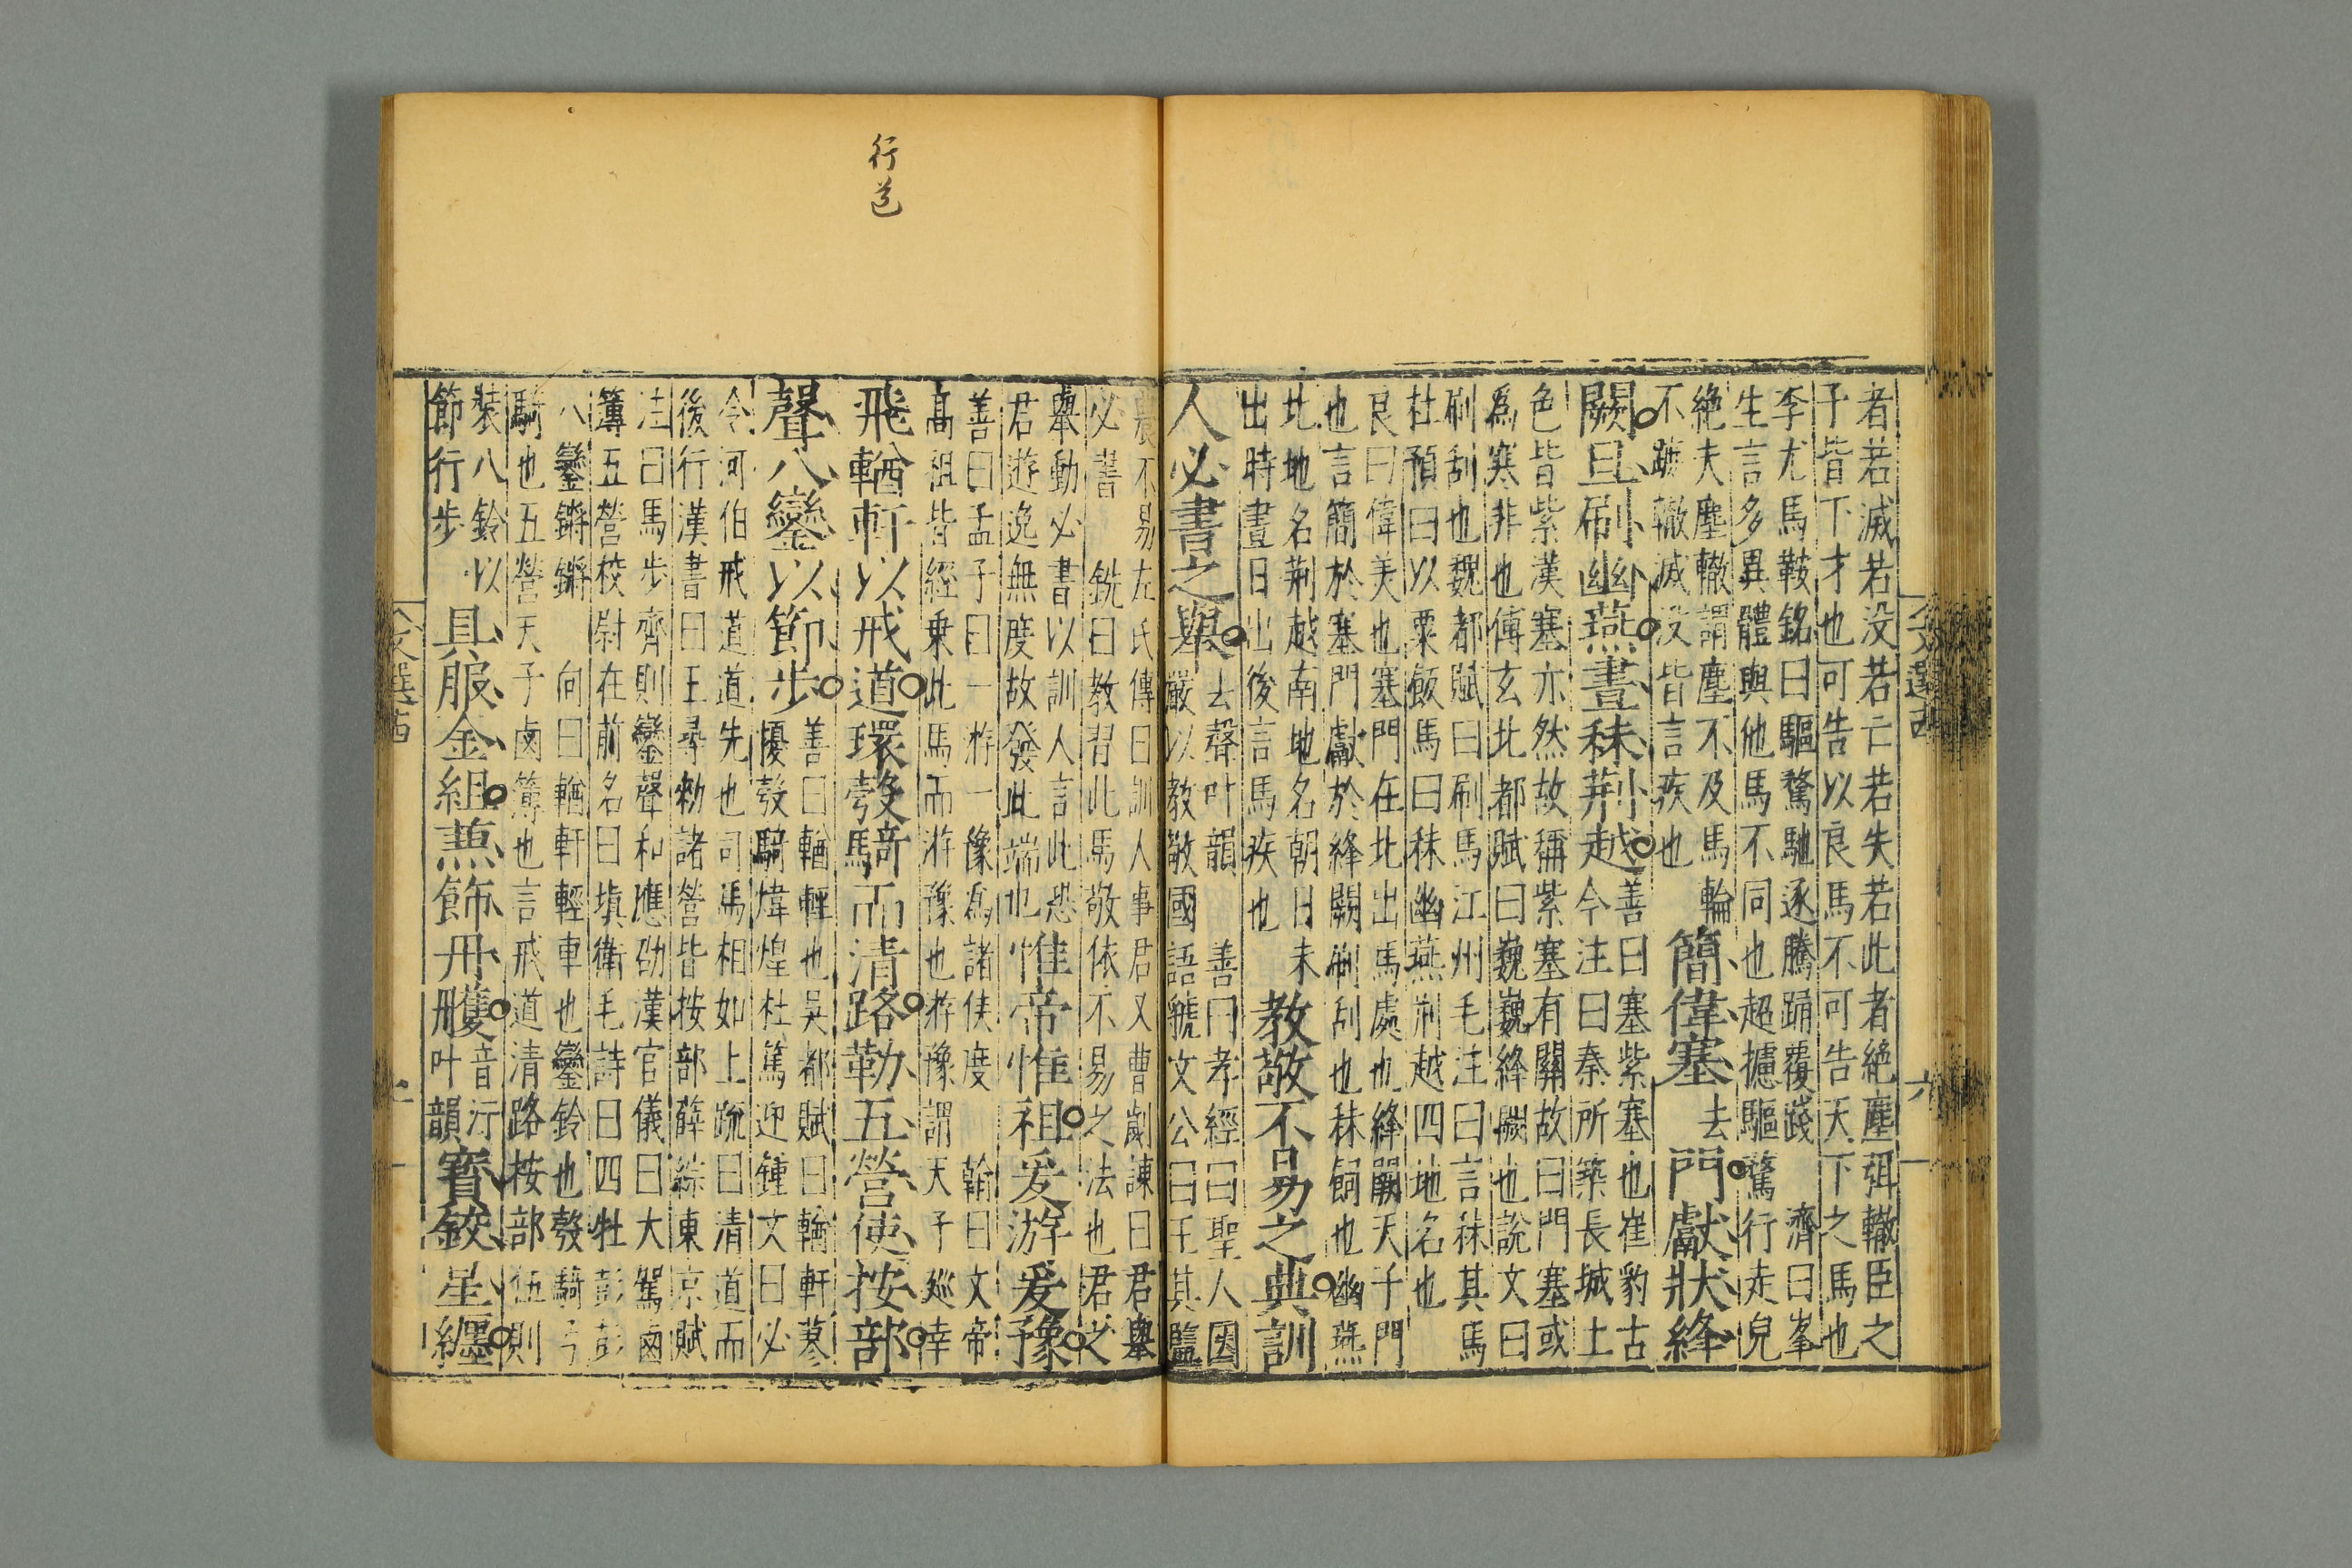 者若滅若没若亡若失若此者絶塵弭轍臣之
子皆下才也可告以良馬不可告天下之馬也
李尤馬鞍銘曰驅騖馳逐騰踊覆踐 濟曰峯
生言多異體與他馬不同也超攄驅騖行走皃
絶夫塵轍謂塵不及馬輪
不蹠轍滅没皆言疾也
簡偉塞去門獻狀絳
闕旦刷幽燕晝秣荆越
善曰塞紫塞也崔豹古
今注曰秦所築長城土
色皆紫漢塞亦然故稱紫塞有關故曰門塞或
爲寒非也傅玄北都賦曰巍巍絳闕也說文曰
刷刮也魏都賦曰刷馬江州毛注曰言秣其馬
杜預曰以粟飯馬曰秣幽燕荆越四地名也
良曰偉美也塞門在北出馬處也絳闕天子門
也言簡於塞門獻於絳闕刷刮也秣飼也幽燕
北地名荆越南地名朝日未
出時晝日出後言馬疾也
教敬不易之典訓
人必書之舉
去聲叶韻 善曰孝經曰聖人因
嚴以教敬國語虢文公曰王其監
農不易左氏傳曰訓人事君又曹劌諫曰君舉
必書 銑曰教習此馬敬依不易之法也君之
舉動必書以訓人言此恐
君遊逸無度故發此端也
惟帝惟祖爰游爰豫
善曰孟子曰一游一豫爲諸侯度 翰曰文帝
高祖皆經乗此馬而游豫也游豫謂天子廵幸
飛輶軒以戒道環彀騎而清路勒五營使按部
聲八鑾以節步
善曰輶輕也吴都賦曰輶軒蓼
擾彀騎煒煌杜篤迎鍾文曰必
令河伯戒道道先也司馬相如上疏曰清道而
後行漢書曰王尋勑諸營皆按部薛綜東京賦
注曰馬步齊則鑾聲和應劭漢官儀曰大駕鹵
簿五營校尉在前名曰塡衛毛詩曰四牡彭彭
八鑾鏘鏘 向曰輶軒輕車也鑾鈴也彀騎弓
騎也五營天子鹵簿也言戒道清路按部伍則
裝八鈴以
節行步
具服金組蒹飾丹雘
音汙
叶韻
寳鉸星纏
行道